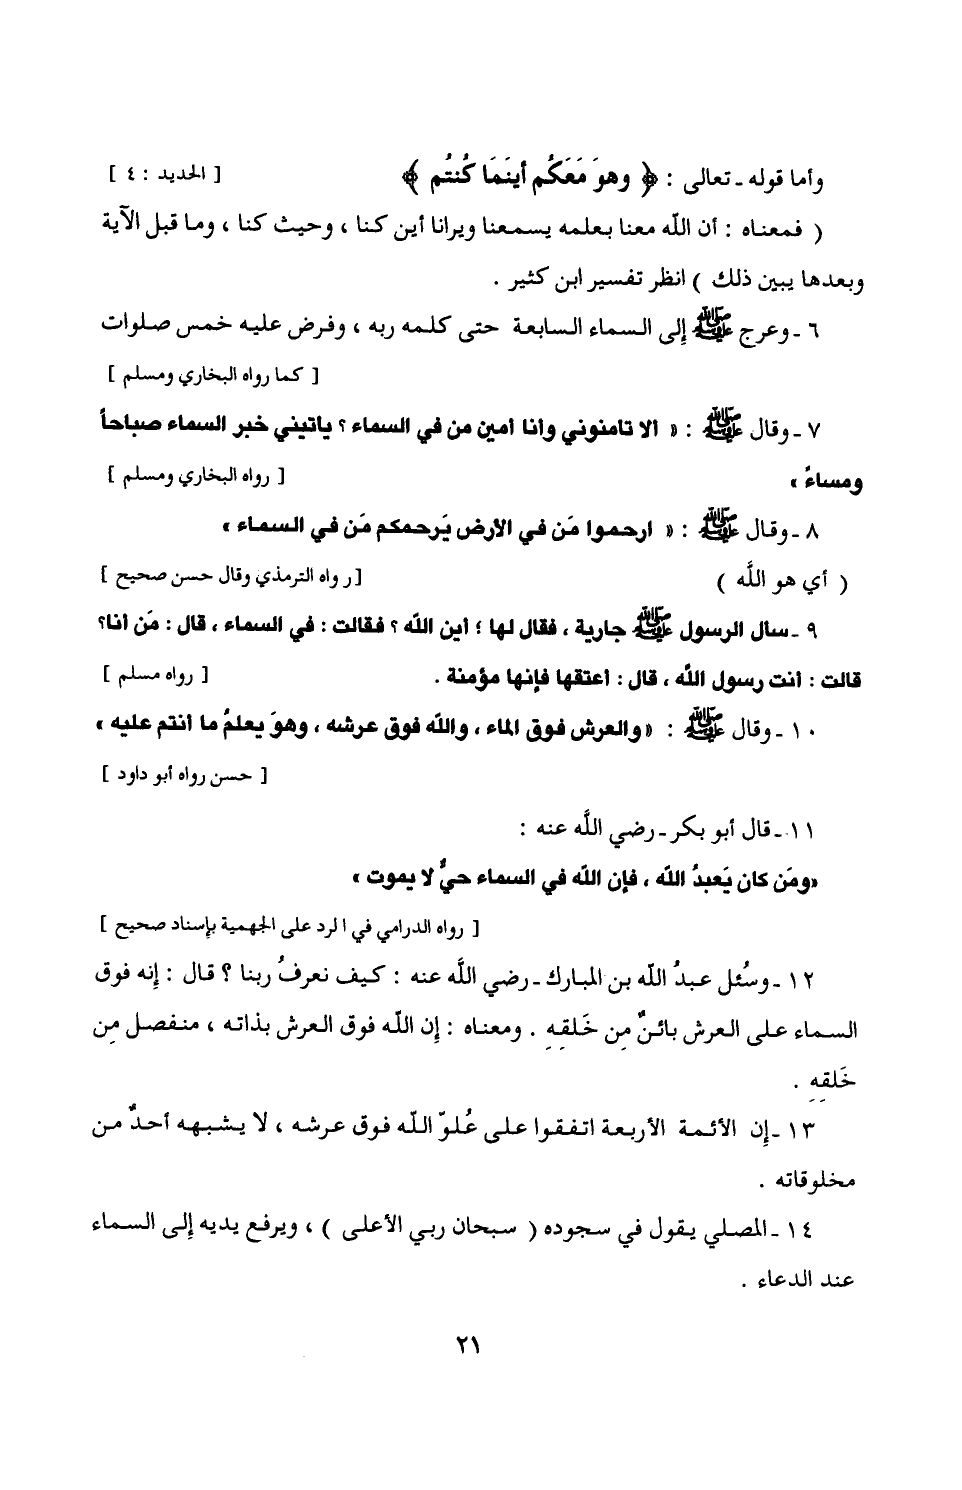 وأما قوله ـ تعالى : ﴿ وهوَ مَعَكُم أينَمَا كُنتُم ﴾ [ الحديد : ٤ ]
( فمعناه : أن اللّه معنا بعلمه يسمعنا ويرانا أين كنا ، وحيث كنا ، وما قبل الآية
وبعدها يبين ذلك ) انظر تفسير ابن كثير .
٦ ـ وعرج ﷺ إلى السماء السابعة حتى كلمه ربه ، وفرض عليه خمس صلوات
[ كما رواه البخاري ومسلم ]
٧ ـ وقال ﷺ : « ألا تأمنوني وأنا أمين من في السماء ؟ يأتيني خبر السماء صباحاً
ومساءً » [ رواه البخاري ومسلم ]
٨ ـ وقال ﷺ : « ارحموا مَن في الأرض يَرحمكم مَن في السماء »
( أي هو اللَّه ) [ رواه الترمذي وقال حسن صحيح ]
٩ ـ سأل الرسول ﷺ جارية ، فقال لها ؛ أين اللّه ؟ فقالت : في السماء ، قال : مَن أنا؟
قالت : أنت رسول اللّه ، قال : أعتقها فإنها مؤمنة . [ رواه مسلم ]
١٠ ـ وقال ﷺ : « والعرش فوق الماء ، واللّه فوق عرشه ، وهوَ يعلمُ ما أنتم عليه »
[ حسن رواه أبو داود ]
١١ ـ قال أبو بكر ـ رضي اللَّه عنه :
«ومَن كان يَعبدُ اللّه ، فإن اللّه في السماء حيٌّ لا يموت »
[ رواه الدرامي في الرد على الجهمية بإسناد صحيح ]
١٢ ـ وسُئل عبدُ اللّه بن المبارك ـ رضي اللَّه عنه : كيف نعرفُ ربنا ؟ قال : إنه فوق
السماء على العرش بائنٌ مِن خَلقِهِ . ومعناه : إن اللّه فوق العرش بذاته ، منفصل مِن
خَلقِهِ .
١٣ ـ إن الأئمة الأربعة اتفقوا على عُلوّ اللّه فوق عرشه ، لا يشبهه أحدٌ من
مخلوقاته .
١٤ ـ المصلي يقول في سجوده ( سبحان ربي الأعلى ) ، ويرفع يديه إلى السماء
عند الدعاء .
٢١